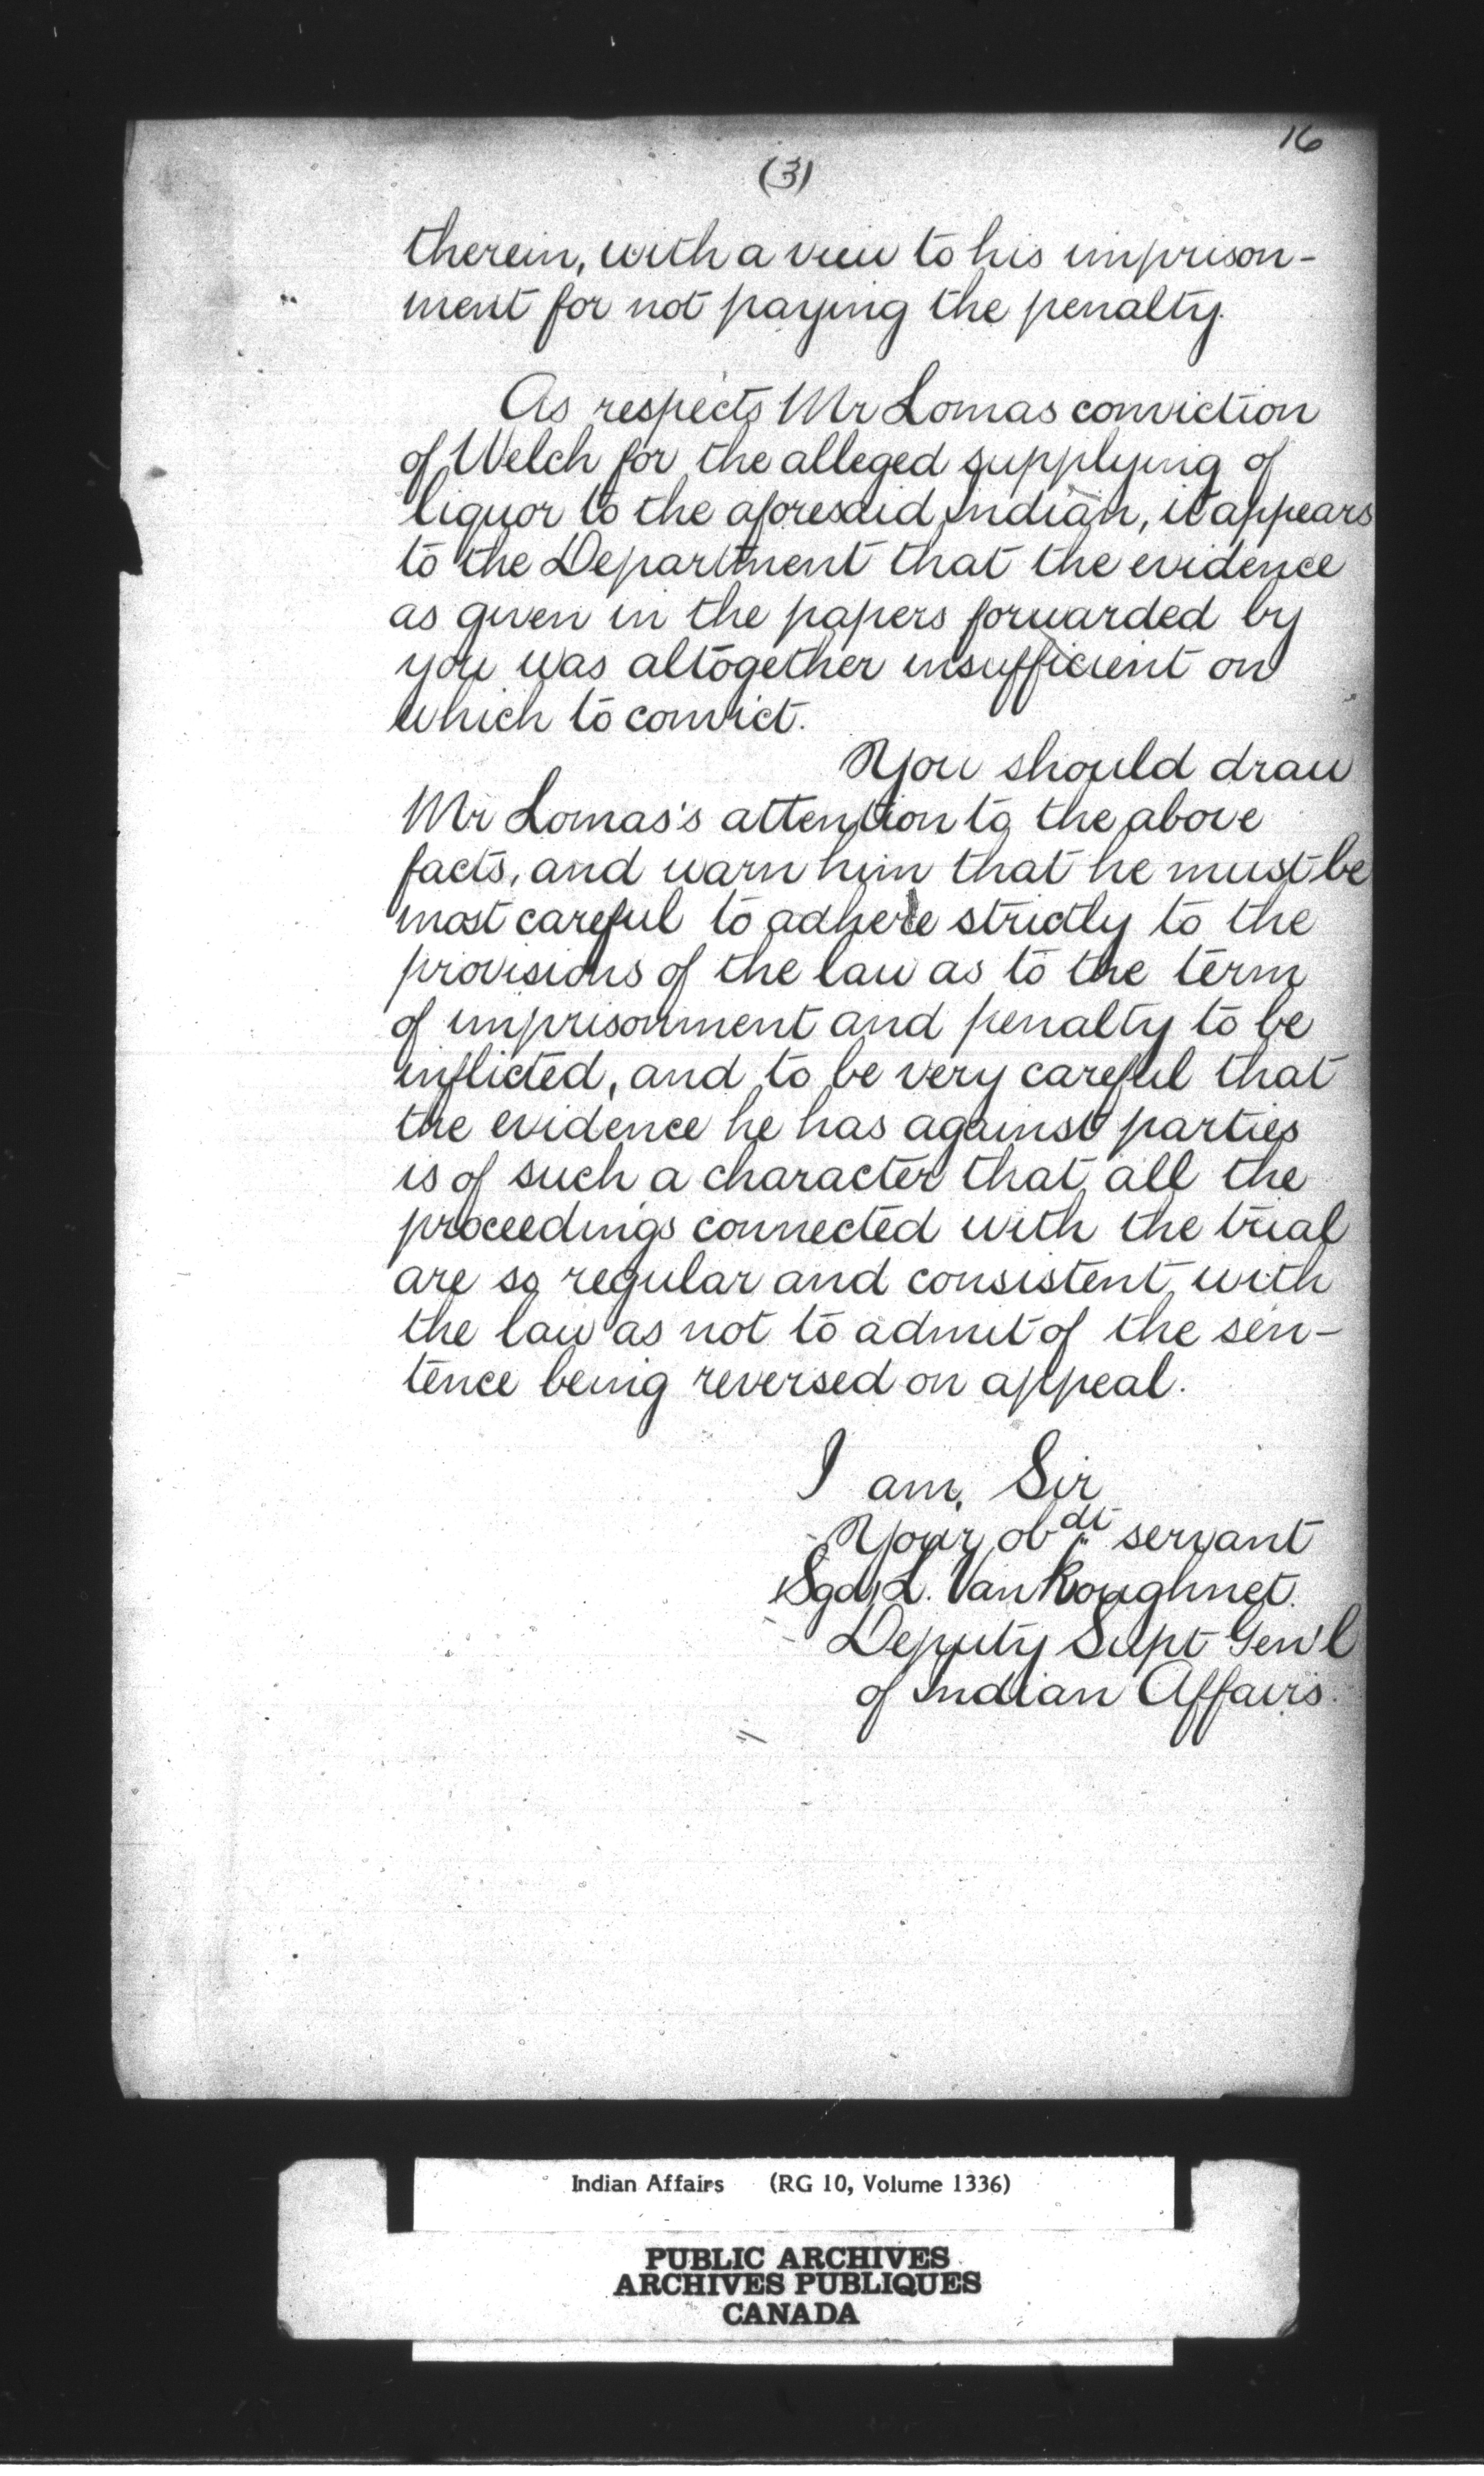 16
(3)
therein, with a view to his imprison-
ment for not paying the penalty.
As respects Mr Lomas conviction
of Welch for the alleged supplying of
liquor to the aforesaid Indian, it appears
to the Department that the evidence
as given in the papers forwarded by
you was altogether insufficient on
which to convict.
You should draw
Mr Lomas's attention to the above
facts, and warn him that he must be
most careful to adhere strictly to the
provisions of the law as to the term
of imprisonment and penalty to be
inflicted, and to be very careful that
the evidence he has against parties
is of such a character that all the
proceedings connected with the trial
are so regular and consistent with
the law as not to admit of the sen-
tence being reversed on appeal.
I am, Sir
Your obdt servant
(Sgd) L. VanKoughnet.
Deputy Supt Gen'l
of Indian Affairs.
Indian Affairs (RG 10, Volume 1336)
PUBLIC ARCHIVES
ARCHIVES PUBLIQUES
CANADA